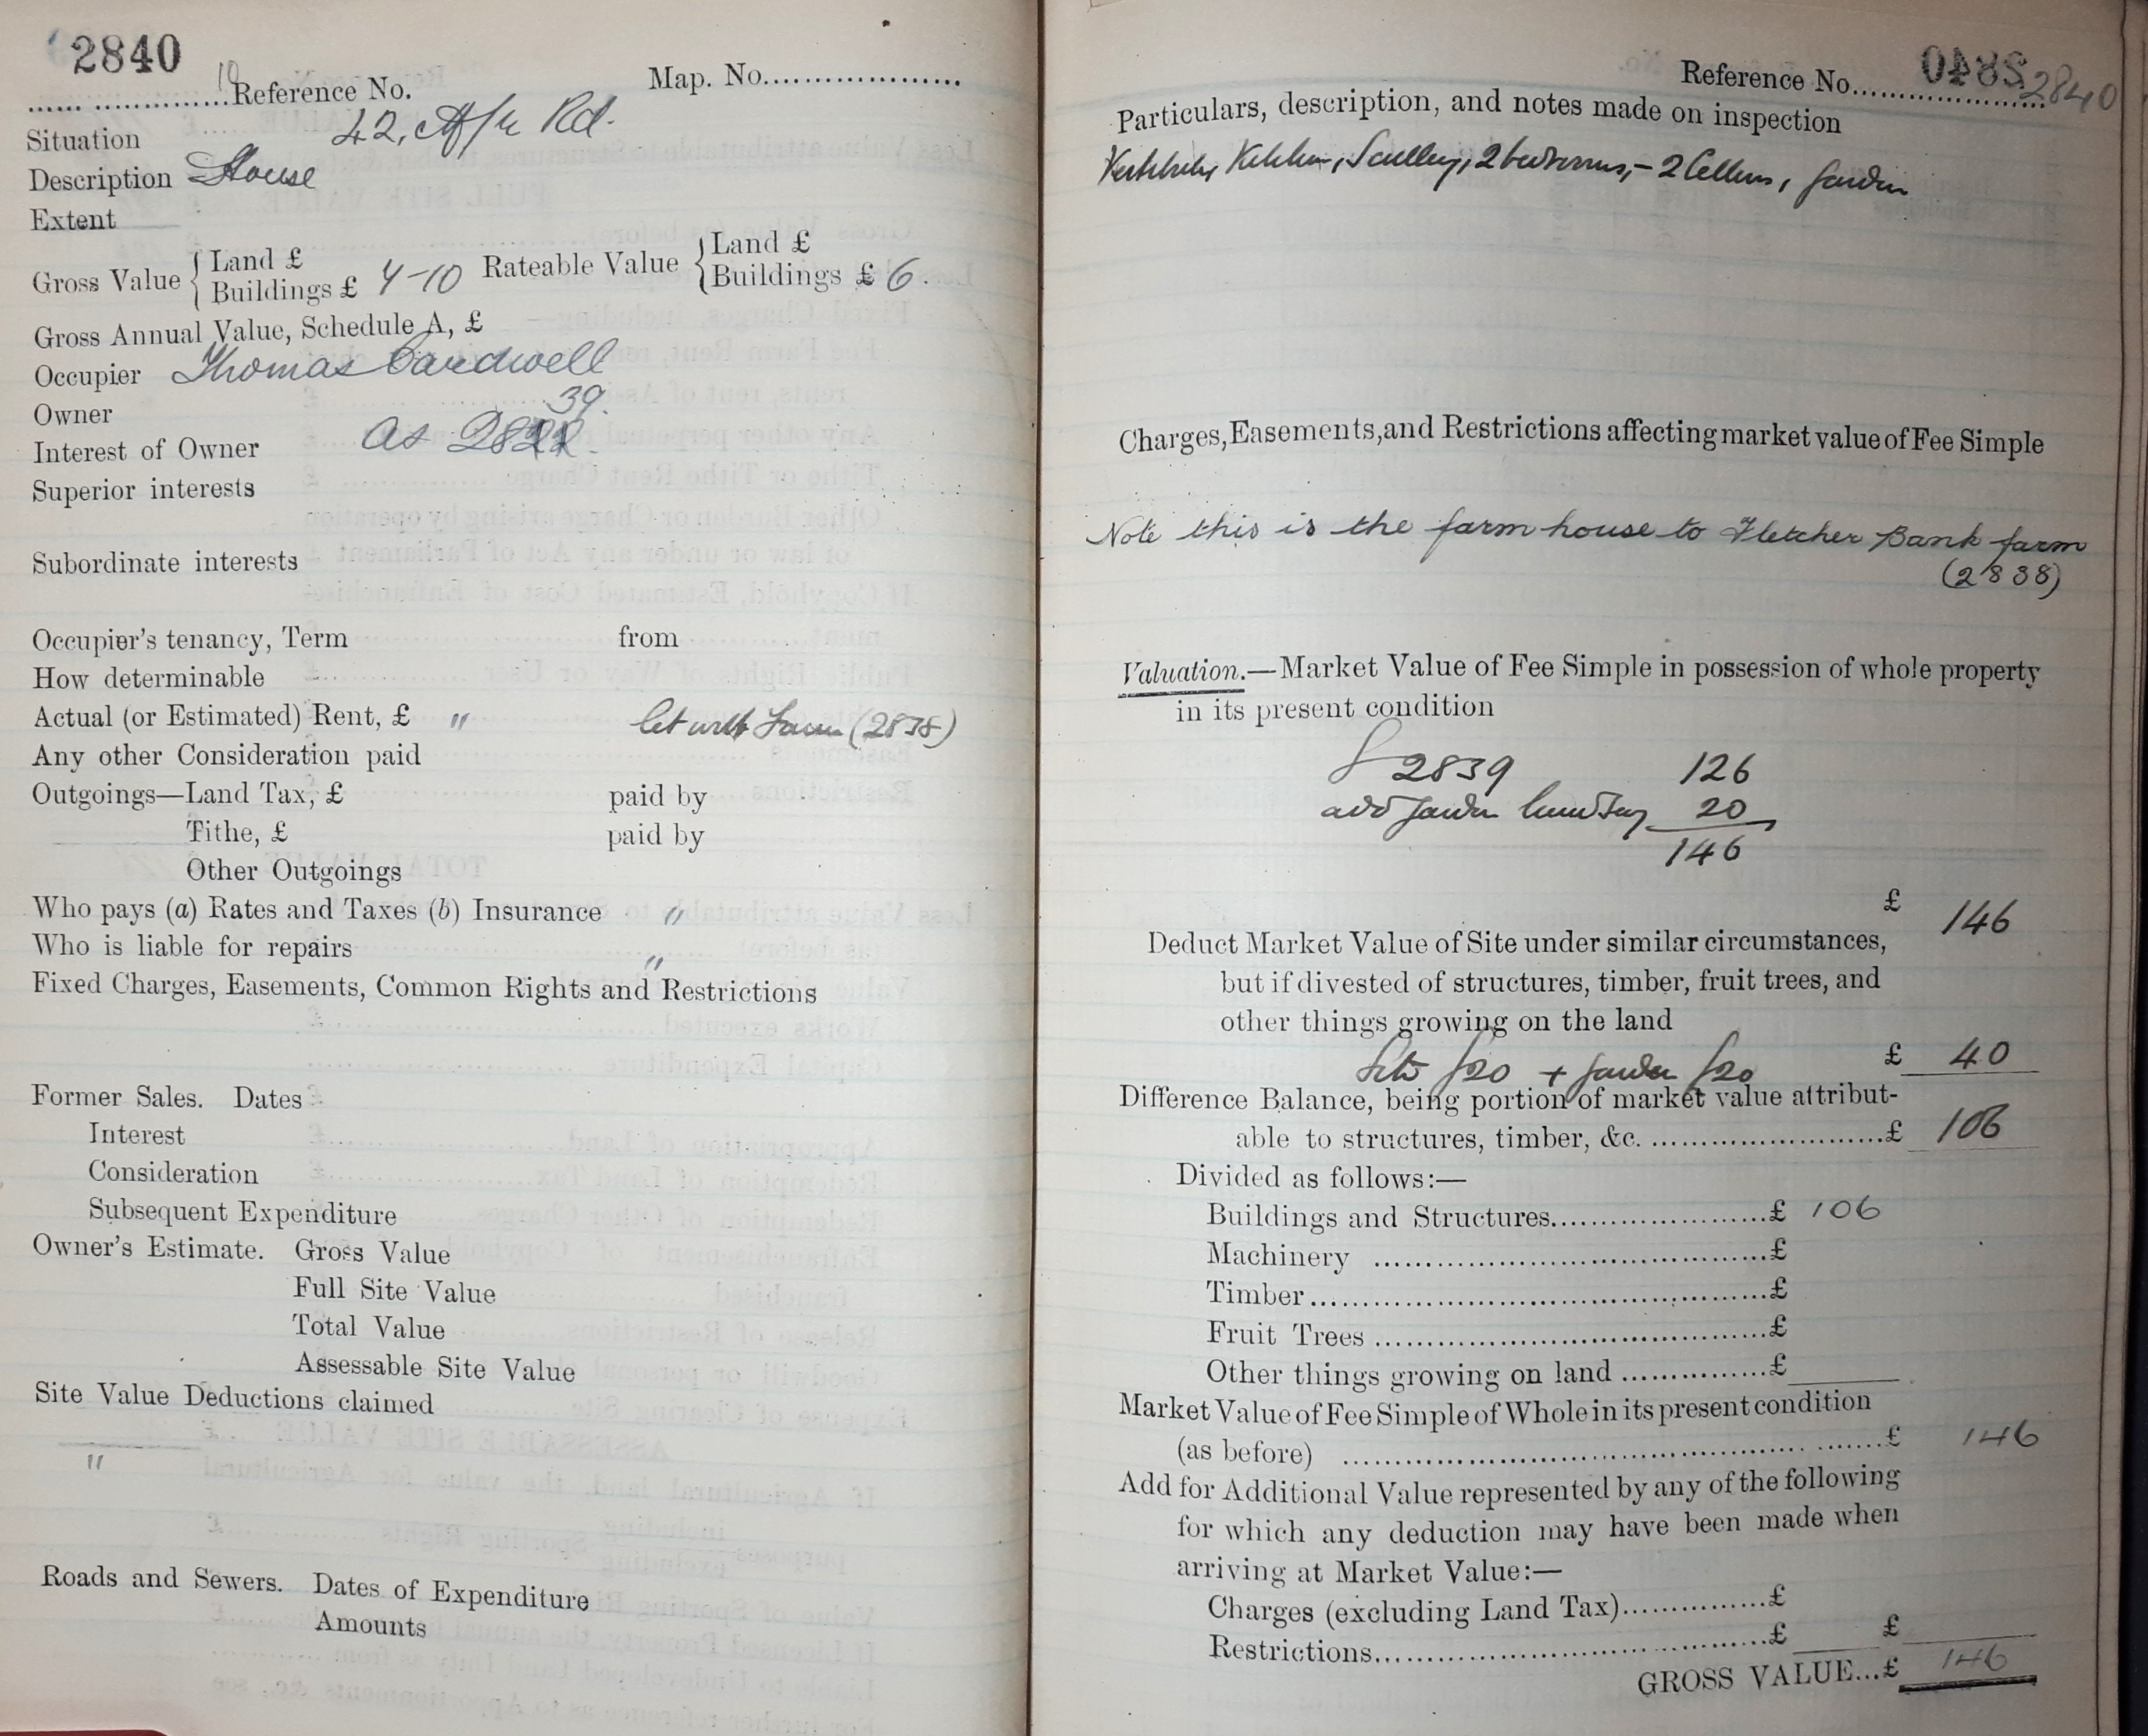 2840
10
Reference No. Map. No.
Situation 42, Rd.
Description House
Extent
Gross Value { Land £
Buildings £ 4-10 Rateable Value { Land £
Buildings £ 6.
Gross Annual Value, Schedule A, £
Occupier Thomas Cardwell
Owner 39.
Interest of Owner as 28
Superior interests
Subordinate interests
Occupier's tenancy, Term from
How determinable
Actual (or Estimated) Rent, £ " let with Farm (2838)
Any other Consideration paid
Outgoings—Land Tax, £ paid by
Tithe, £ paid by
Other Outgoings
Who pays (a) Rates and Taxes (b) Insurance "
Who is liable for repairs "
Fixed Charges, Easements, Common Rights and Restrictions
Former Sales. Dates
Interest
Consideration
Subsequent Expenditure
Owner's Estimate. Gross Value
Full Site Value
Total Value
Assessable Site Value
Site Value Deductions claimed
"
Roads and Sewers. Dates of Expenditure
Amounts
Reference No. 2840
Particulars, description, and notes made on inspection
Vestibule, Kitchen, Scullery, 2 bedrooms, - 2 Cellars, garden
Charges, Easements, and Restrictions affecting market value of Fee Simple
Note this is the farm house to Fletcher Bank farm
(2838)
Valuation.—Market Value of Fee Simple in possession of whole property
in its present condition
2839 126
add garden 20
146
£ 146
Deduct Market Value of Site under similar circumstances,
but if divested of structures, timber, fruit trees, and
other things growing on the land
Site £20 + garden £20 £ 40
Difference Balance, being portion of market value attribut-
able to structures, timber, &c. £ 106
Divided as follows:—
Buildings and Structures £ 106
Machinery £
Timber £
Fruit Trees £
Other things growing on land £
Market Value of Fee Simple of Whole in its present condition
(as before) £ 146
Add for Additional Value represented by any of the following
for which any deduction may have been made when
arriving at Market Value:—
Charges (excluding Land Tax) £
Restrictions £ £
GROSS VALUE...£ 146